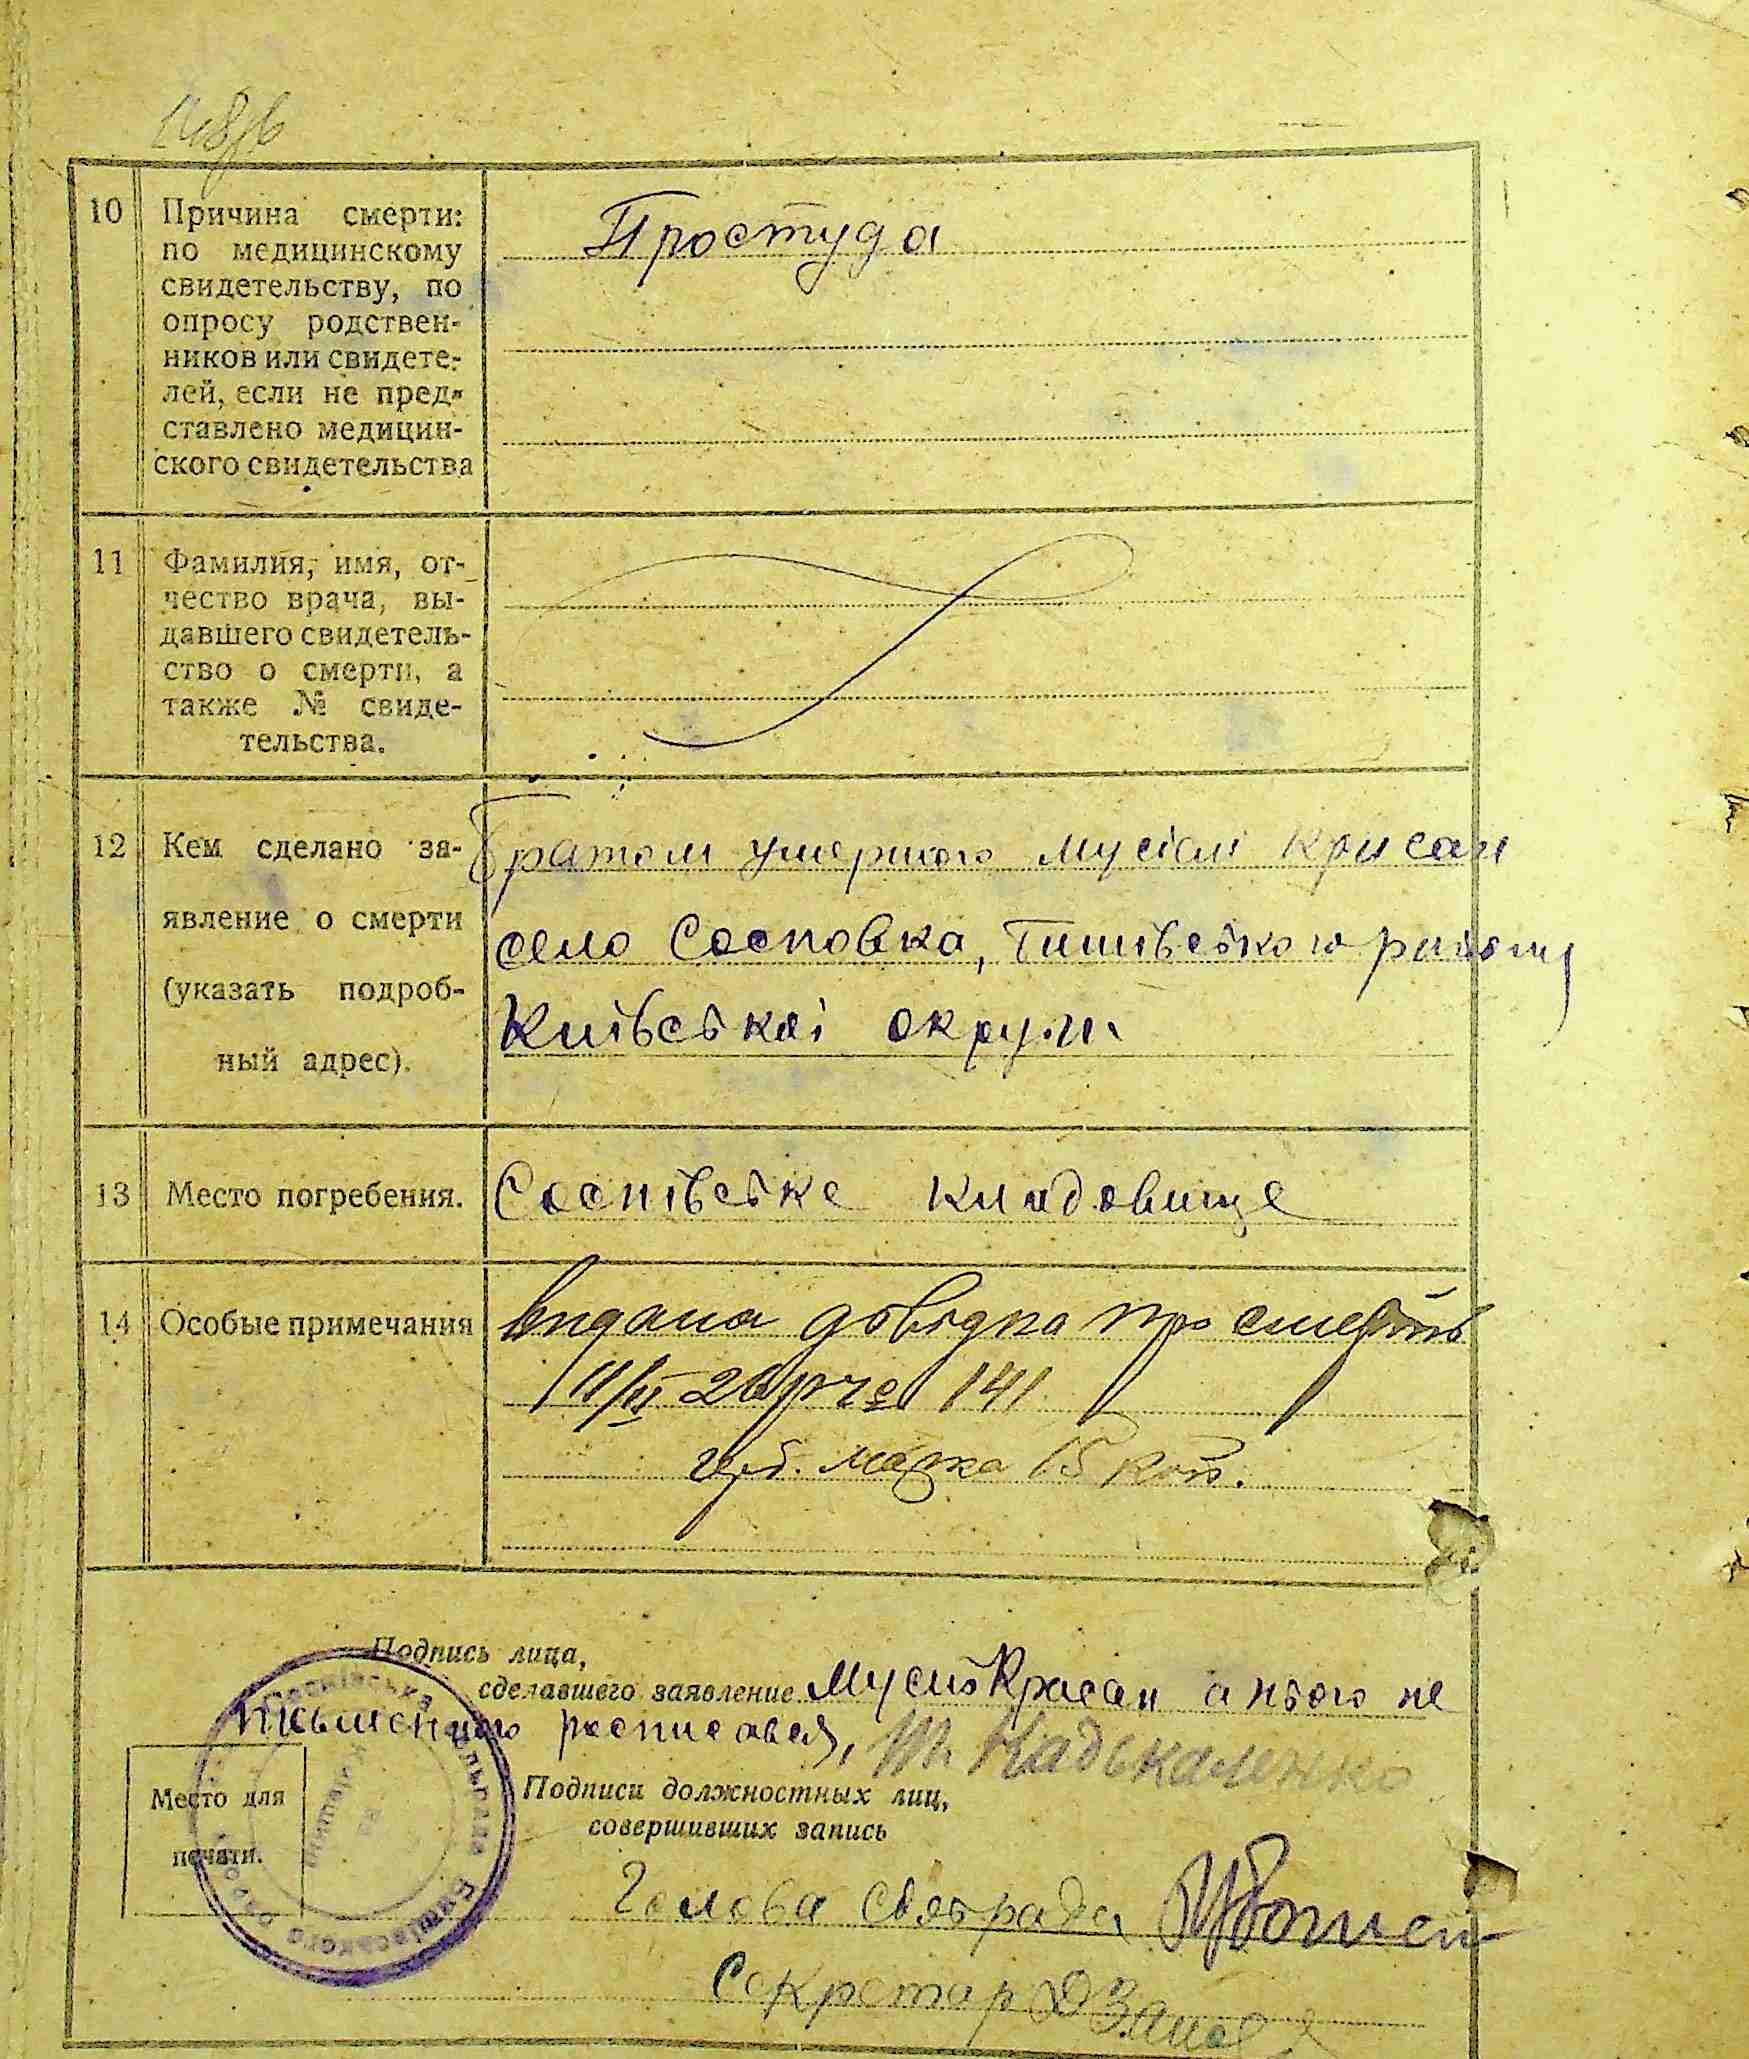 10 Причина смерти:
по медицинскому
свидетельству, по
опросу родствен-
ников или свидете-
лей, если не пред-
ставлено медицин-
ского свидетельства
Простуда
11 Фамилия, имя, от-
чество врача, вы-
давшего свидетель-
ство о смерти, а
также № свиде-
тельства.
12 Кем сделано за-
явление о смерти
(указать подроб-
ный адрес).
Братом умершого Мусієм Крисан
село Сосновка, району
Київської округи
13 Место погребения.
Соснівське кладовище
14 Особые примечания
видана довідка про смерть
11/II 26 р № 141
герб. марка 15 коп.
Подпись лица,
сделавшего заявление Мусій Крисан а нього не
письменного росписався,
Место для
печати.
Подписи должностных лиц,
совершивших запись
Голова сільради
Секретар